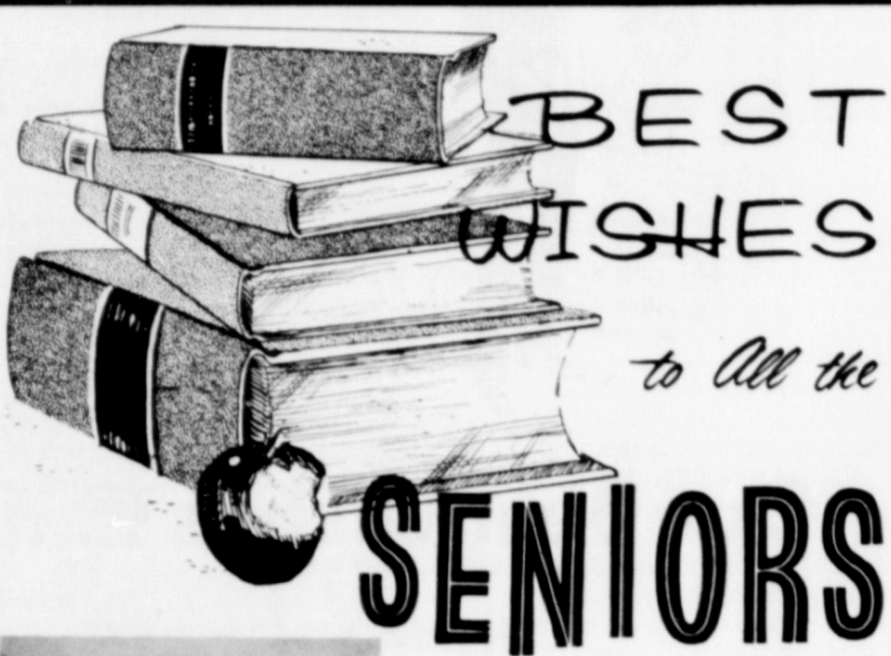 BEST
WISHES
to All the
SENIORS